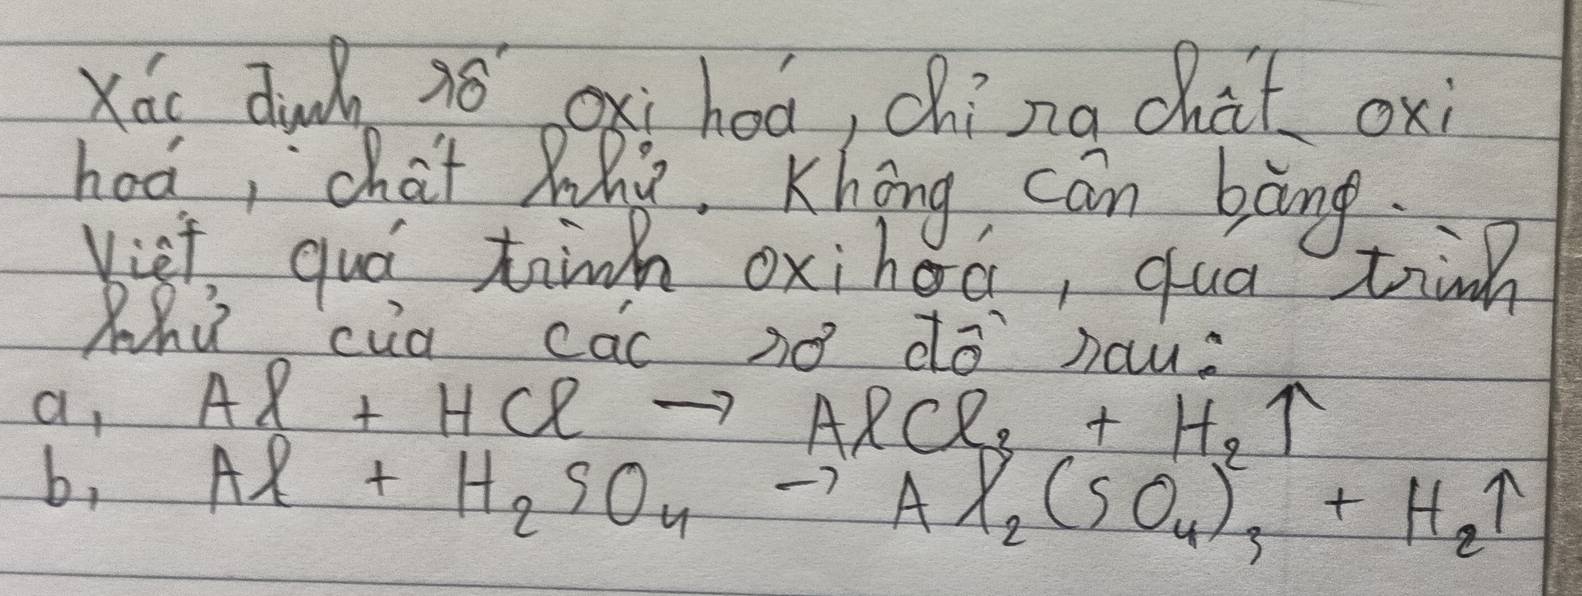 Xác định số oxi hoá, chỉ ra chất oxi
hoá, chất khử. Không cân bằng.
Viết quá trình oxi hoá, quá trình
khử của các sơ đồ sau:
a, Al + HCl → AlCl₃ + H₂↑
b, Al + H₂SO₄ → Al₂(SO₄)₃ + H₂↑